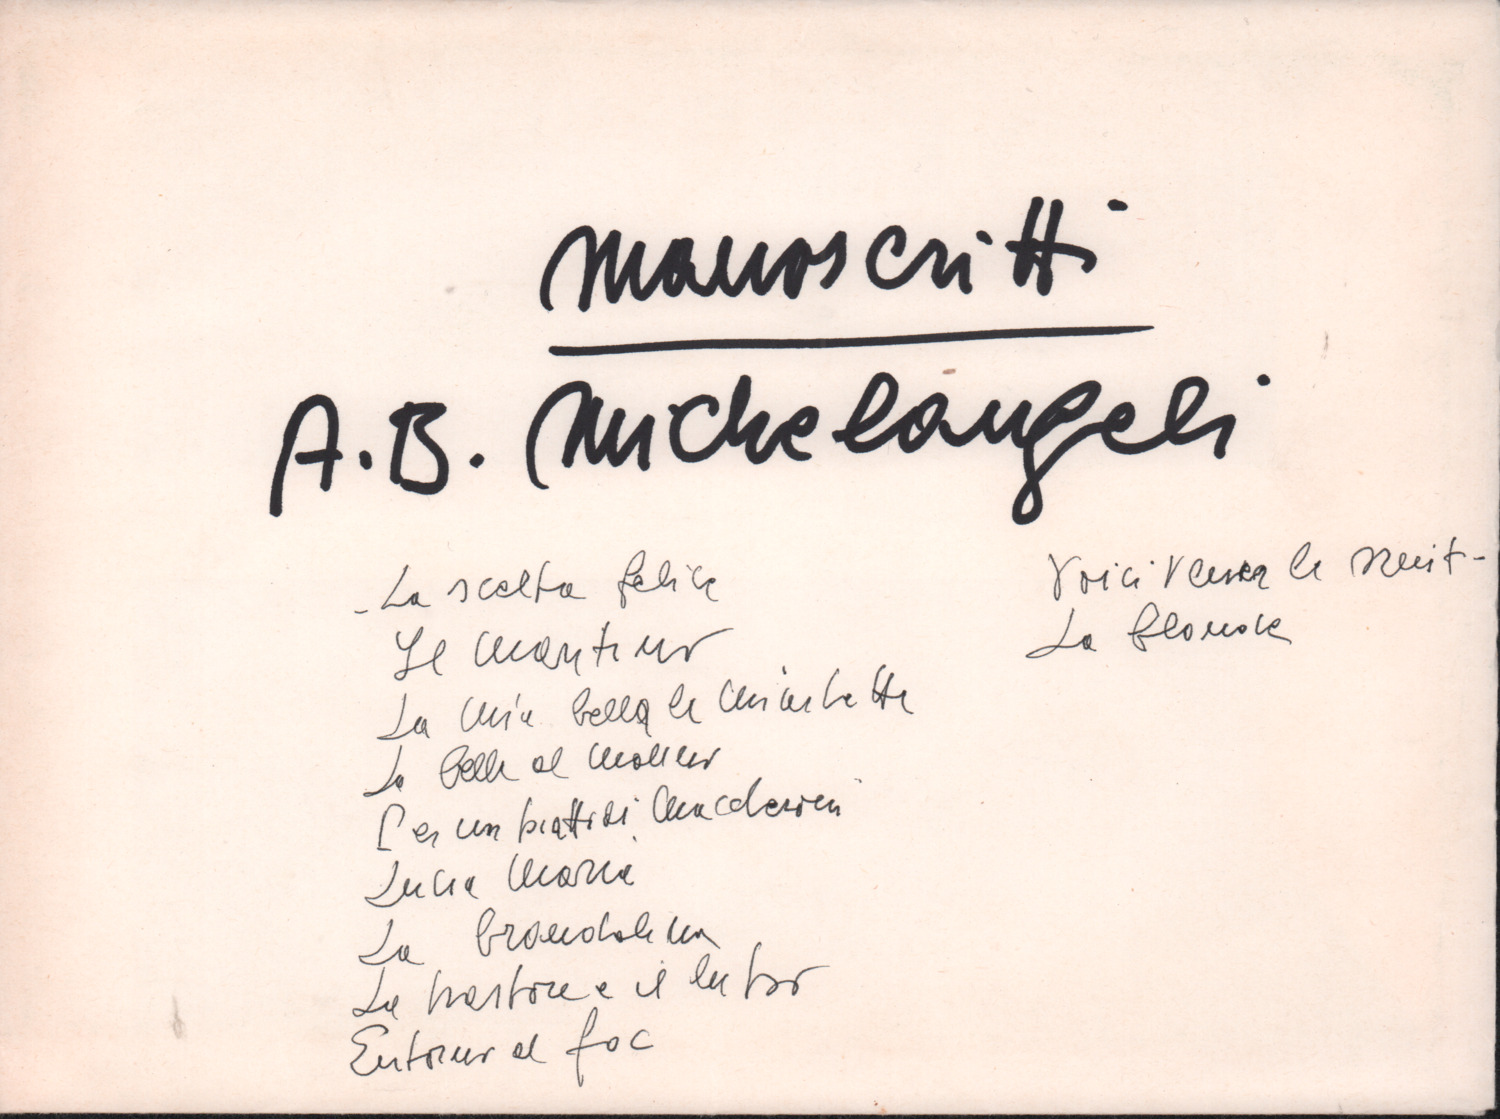 manoscritti
A.B. Michelangeli
- La scelta felice
Il mantino
La mia bella la
La bella al molino
Per un piatto di maccheroni
Lucia Maria
La brandolina
La pastora e il lupo
Entorno al foc
Voici venir la nuit -
La blonde